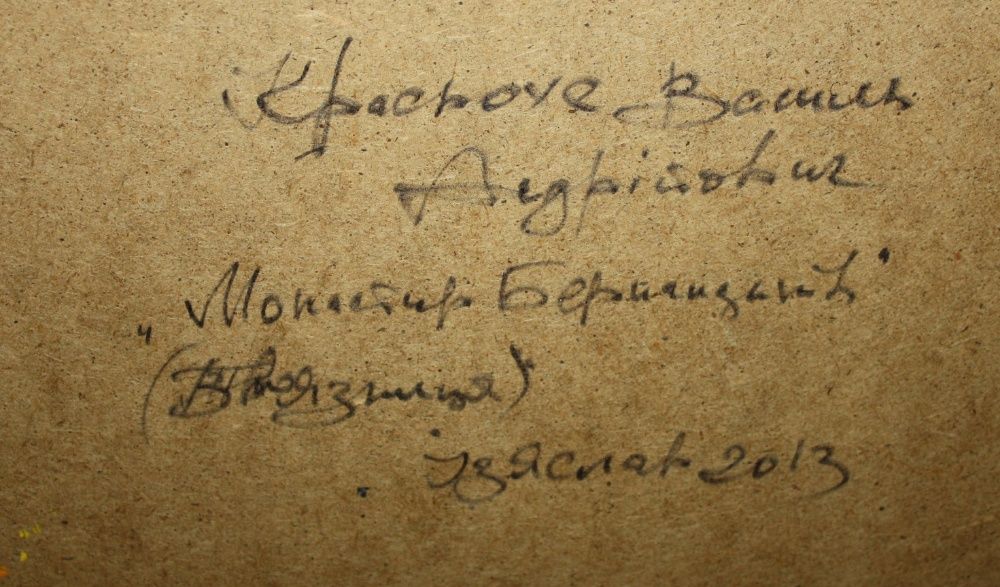 Красьоха Василь
Андрійович
"Монастир Бернардинів"
(Вʼязниця)
Ізяслав 2013